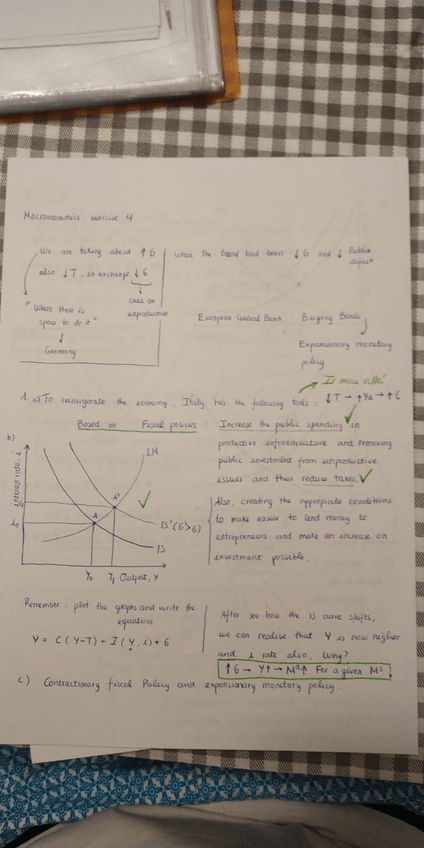 Macroeconomics exercise 4
We are talking about ↑ G
when the trend had been ↓ G and ↓ Public
also ↓ T, in exchange ↓ G
"Where there is
space to do it"
↓
Germany
European Central Bank : Buying Bonds
Expansionary monetary
policy
Ir mas allá
1. a) To reinvigorate the economy, Italy has the following tools : ↓T → ↑Yd → ↑C
Based on Fiscal policies : Increase the public spending in
productive infrastructure and removing
public investment from unproductive
issues and thus reduce taxes. ✓
Also, creating the appropriate conditions
to make easier to lend money to
entrepreneurs and make an increase on
investment possible.
b)
Interest rate, i
LM
A'
A
IS' (G'>G)
IS
i0
Y0 Y1 Output, Y
Remember : plot the graphs and write the
equations
Y = C(Y-T) + I(Y, i) + G
After see how the IS curve shifts,
we can realise that Y is now higher
and i rate also. Why?
↑G → Y↑ → Md↑ For a given Ms
c) Contractionary fiscal Policy and expansionary monetary policy.